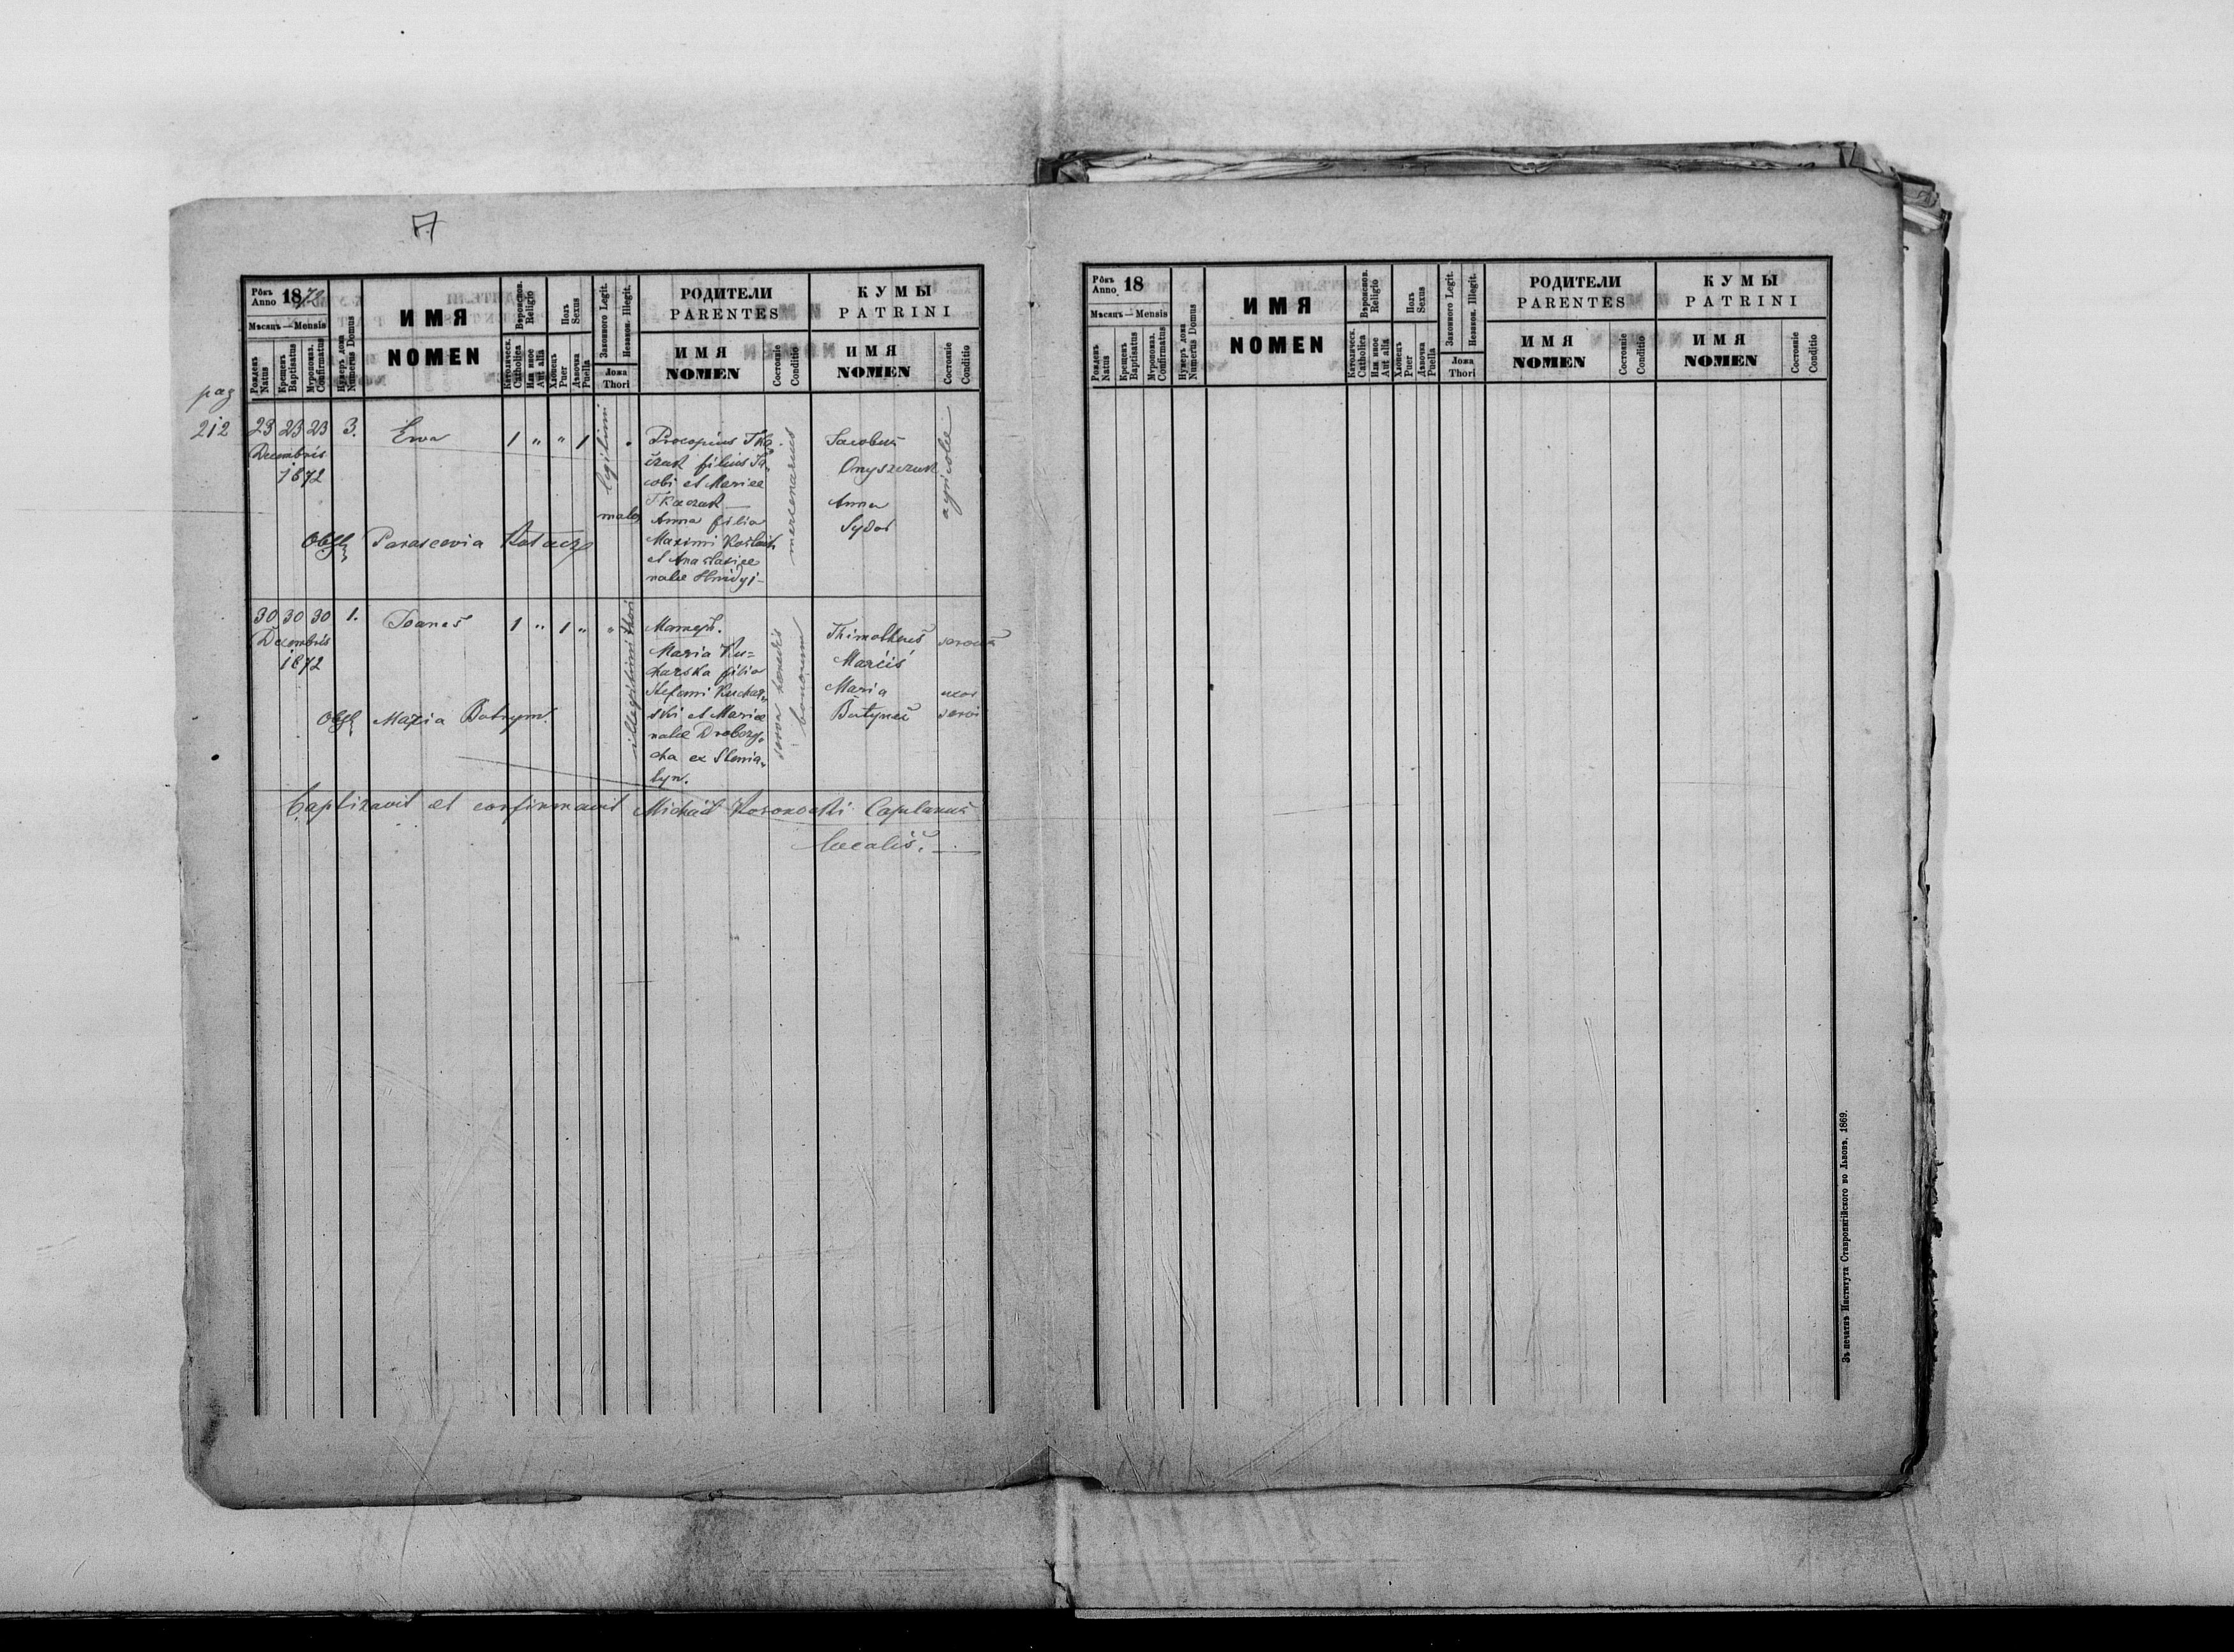 7
Рôкъ
Anno 1872
Мѣсяцъ — Mensis
Рожденъ
Natus
Крещенъ
Baptisatus
Мѵропомаз.
Confirmatus
Нумеръ дома
Numerus Domus
ИМЯ
NOMEN
Вѣроисповѣд.
Religio
Католическ.
Catholica
Или иное
Aut alia
Полъ
Sexus
Хлопецъ
Puer
Дѣвочка
Puella
Законного Legit.
Незакон. Illegit.
Ложа
Thori
РОДИТЕЛИ
PARENTES
ИМЯ
NOMEN
Состояніе
Conditio
КУМЫ
PATRINI
ИМЯ
NOMEN
Состояніе
Conditio
pag
212
23 23 23 3. Ewa 1 " " 1
Decembris
1872
legitimi
Procopius Tka=
czuk filius Ja=
cobi et Mariae
Tkaczuk —
Anna filia
Maximi
et Anastasiae
natae
mercenarius
Jacobus
Onyszczuk
Anna
Sydor
agricolae
Obst. Parascevia
30 30 30 1. Joanes 1 " 1 " "
Decembris
1872
illegitimi thori
Матерь.
Maria Ku=
charska filia
Stefani Kuchar=
ski et Mariae
natae Drobozy=
cha ex Stenia=
tyn.
serva haeredis
bonorum
Thimotheus
Marcis
servus
Maria
Batyneć
uxor
servi
Obst. Maria Batrym.
Baptizavit et confirmavit Michael Kosonocki Capelanus
localis. —
Рôкъ
Anno 18
Мѣсяцъ — Mensis
Рожденъ
Natus
Крещенъ
Baptisatus
Мѵропомаз.
Confirmatus
Нумеръ дома
Numerus Domus
ИМЯ
NOMEN
Вѣроисповѣд.
Religio
Католическ.
Catholica
Или иное
Aut alia
Полъ
Sexus
Хлопецъ
Puer
Дѣвочка
Puella
Законного Legit.
Незакон. Illegit.
Ложа
Thori
РОДИТЕЛИ
PARENTES
ИМЯ
NOMEN
Состояніе
Conditio
КУМЫ
PATRINI
ИМЯ
NOMEN
Состояніе
Conditio
Зъ печатнѣ Института Ставропигійского во Львовѣ, 1869.